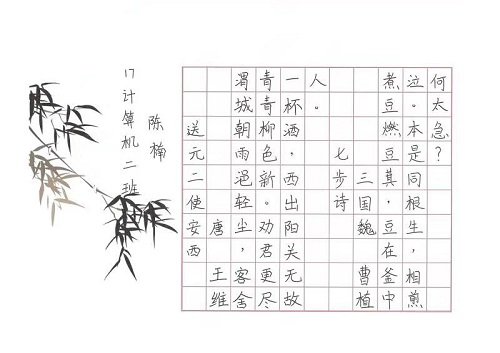 17计算机二班
陈楠
送元二使安西
唐 王维
渭城朝雨浥轻尘，客舍
青青柳色新。劝君更尽
一杯酒，西出阳关无故
人。
七步诗
三国魏 曹植
煮豆燃豆其，豆在釜中
泣。本是同根生，相煎
何太急？